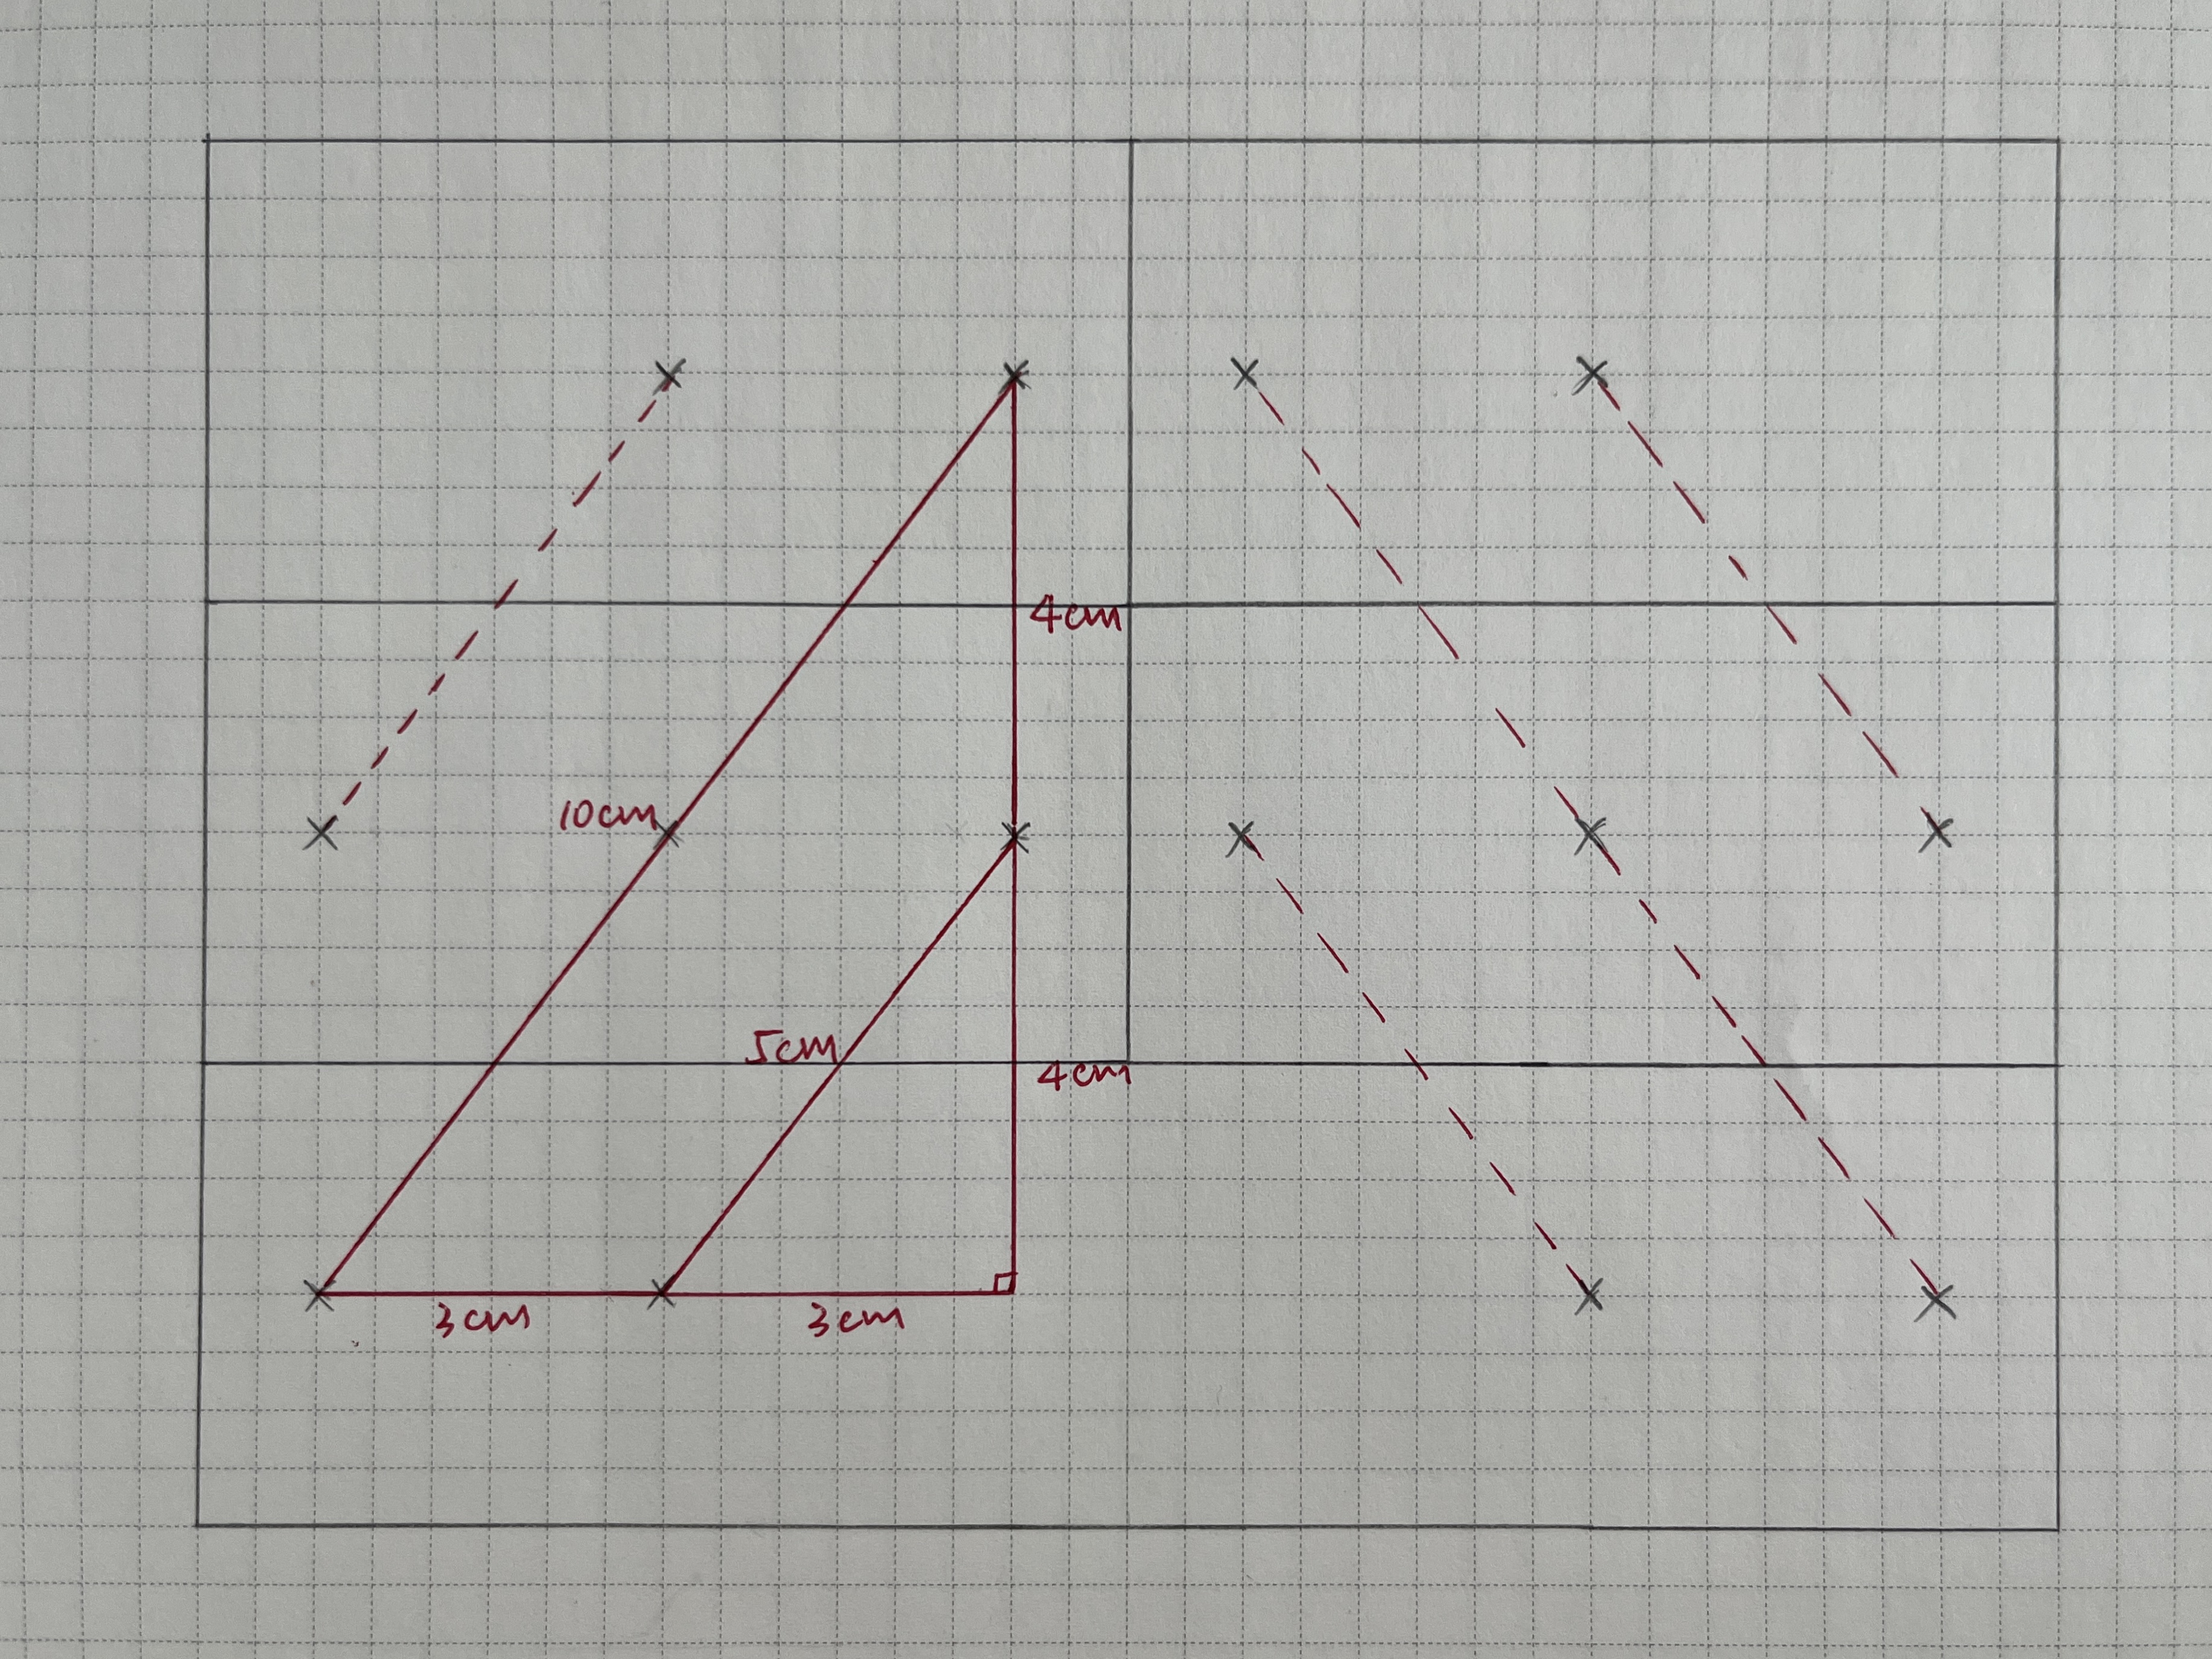 4cm
10cm
5cm
4cm
3cm
3cm